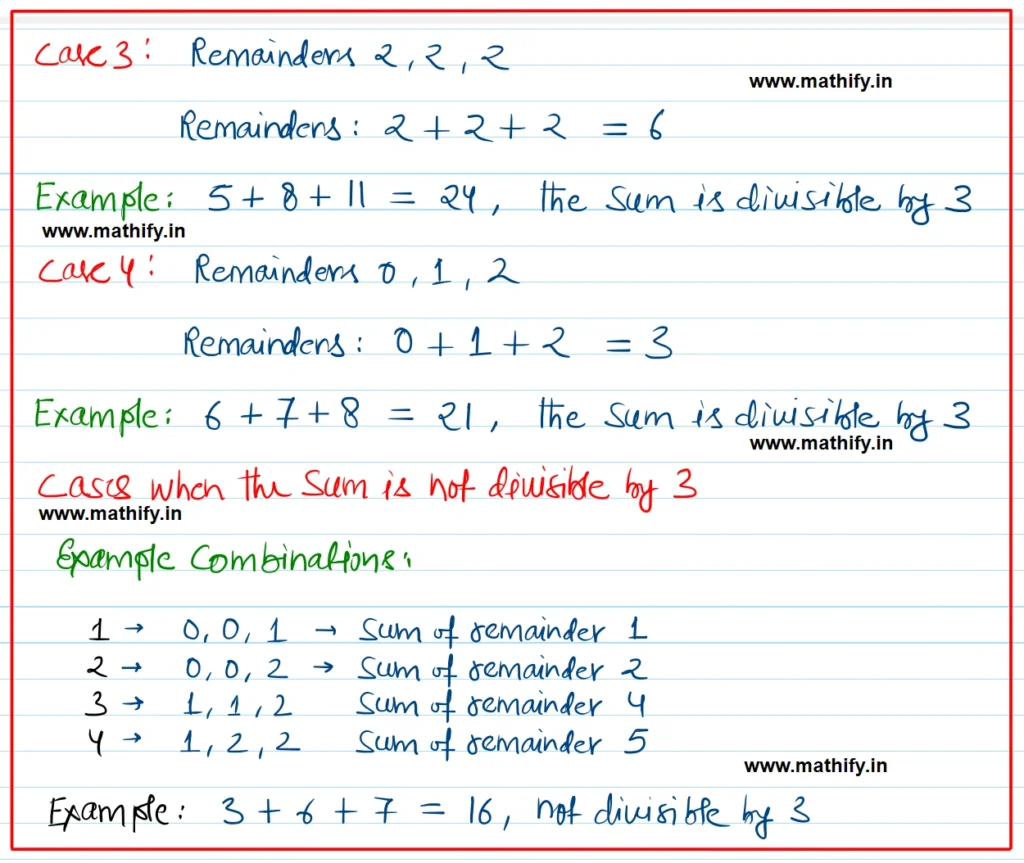 Case 3: Remainders 2, 2, 2
www.mathify.in
Remainders: 2 + 2 + 2 = 6
Example: 5 + 8 + 11 = 24, the sum is divisible by 3
www.mathify.in
Case 4: Remainders 0, 1, 2
Remainders: 0 + 1 + 2 = 3
Example: 6 + 7 + 8 = 21, the sum is divisible by 3
www.mathify.in
Cases when the sum is not divisible by 3
www.mathify.in
Example Combinations:
1 → 0, 0, 1 → Sum of remainder 1
2 → 0, 0, 2 → Sum of remainder 2
3 → 1, 1, 2 Sum of remainder 4
4 → 1, 2, 2 Sum of remainder 5
www.mathify.in
Example: 3 + 6 + 7 = 16, not divisible by 3